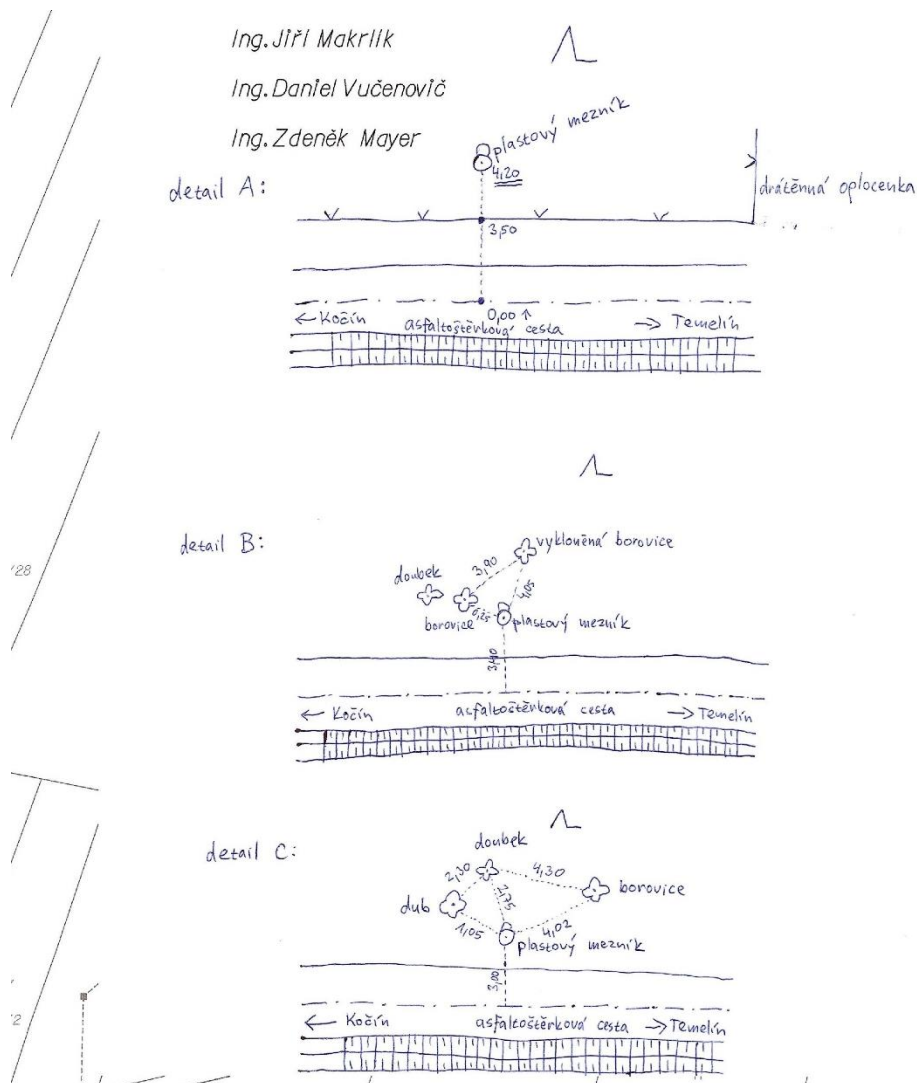 Ing. Jiří Makrlík
Ing. Daniel Vučenovič
Ing. Zdeněk Mayer
detail A:
plastový mezník
4,20
drátěnná oplocenka
3,50
0,00 ↑
← Kočín asfaltoštěrková cesta → Temelín
detail B:
vykloněná borovice
3,90
doubek
4,05
borovice
plastový mezník
← Kočín asfaltoštěrková cesta → Temelín
detail C:
doubek
2,30
4,30
2,75
borovice
dub
1,05
4,02
plastový mezník
3,00
← Kočín asfaltoštěrková cesta → Temelín